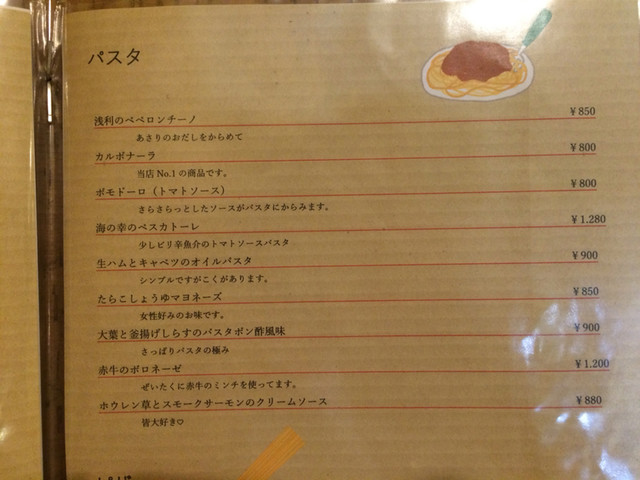 パスタ
浅利のペペロンチーノ ¥850
あさりのおだしをからめて
カルボナーラ ¥800
当店 No.1 の商品です。
ポモドーロ（トマトソース） ¥800
さらさらっとしたソースがパスタにからみます。
海の幸のペスカトーレ ¥1.280
少しピリ辛魚介のトマトソースパスタ
生ハムとキャベツのオイルパスタ ¥900
シンプルですがこくがあります。
たらこしょうゆマヨネーズ ¥850
女性好みのお味です。
大葉と釜揚げしらすのパスタポン酢風味 ¥900
さっぱりパスタの極み
赤牛のボロネーゼ ¥1.200
ぜいたくに赤牛のミンチを使ってます。
ホウレン草とスモークサーモンのクリームソース ¥880
皆大好き♡